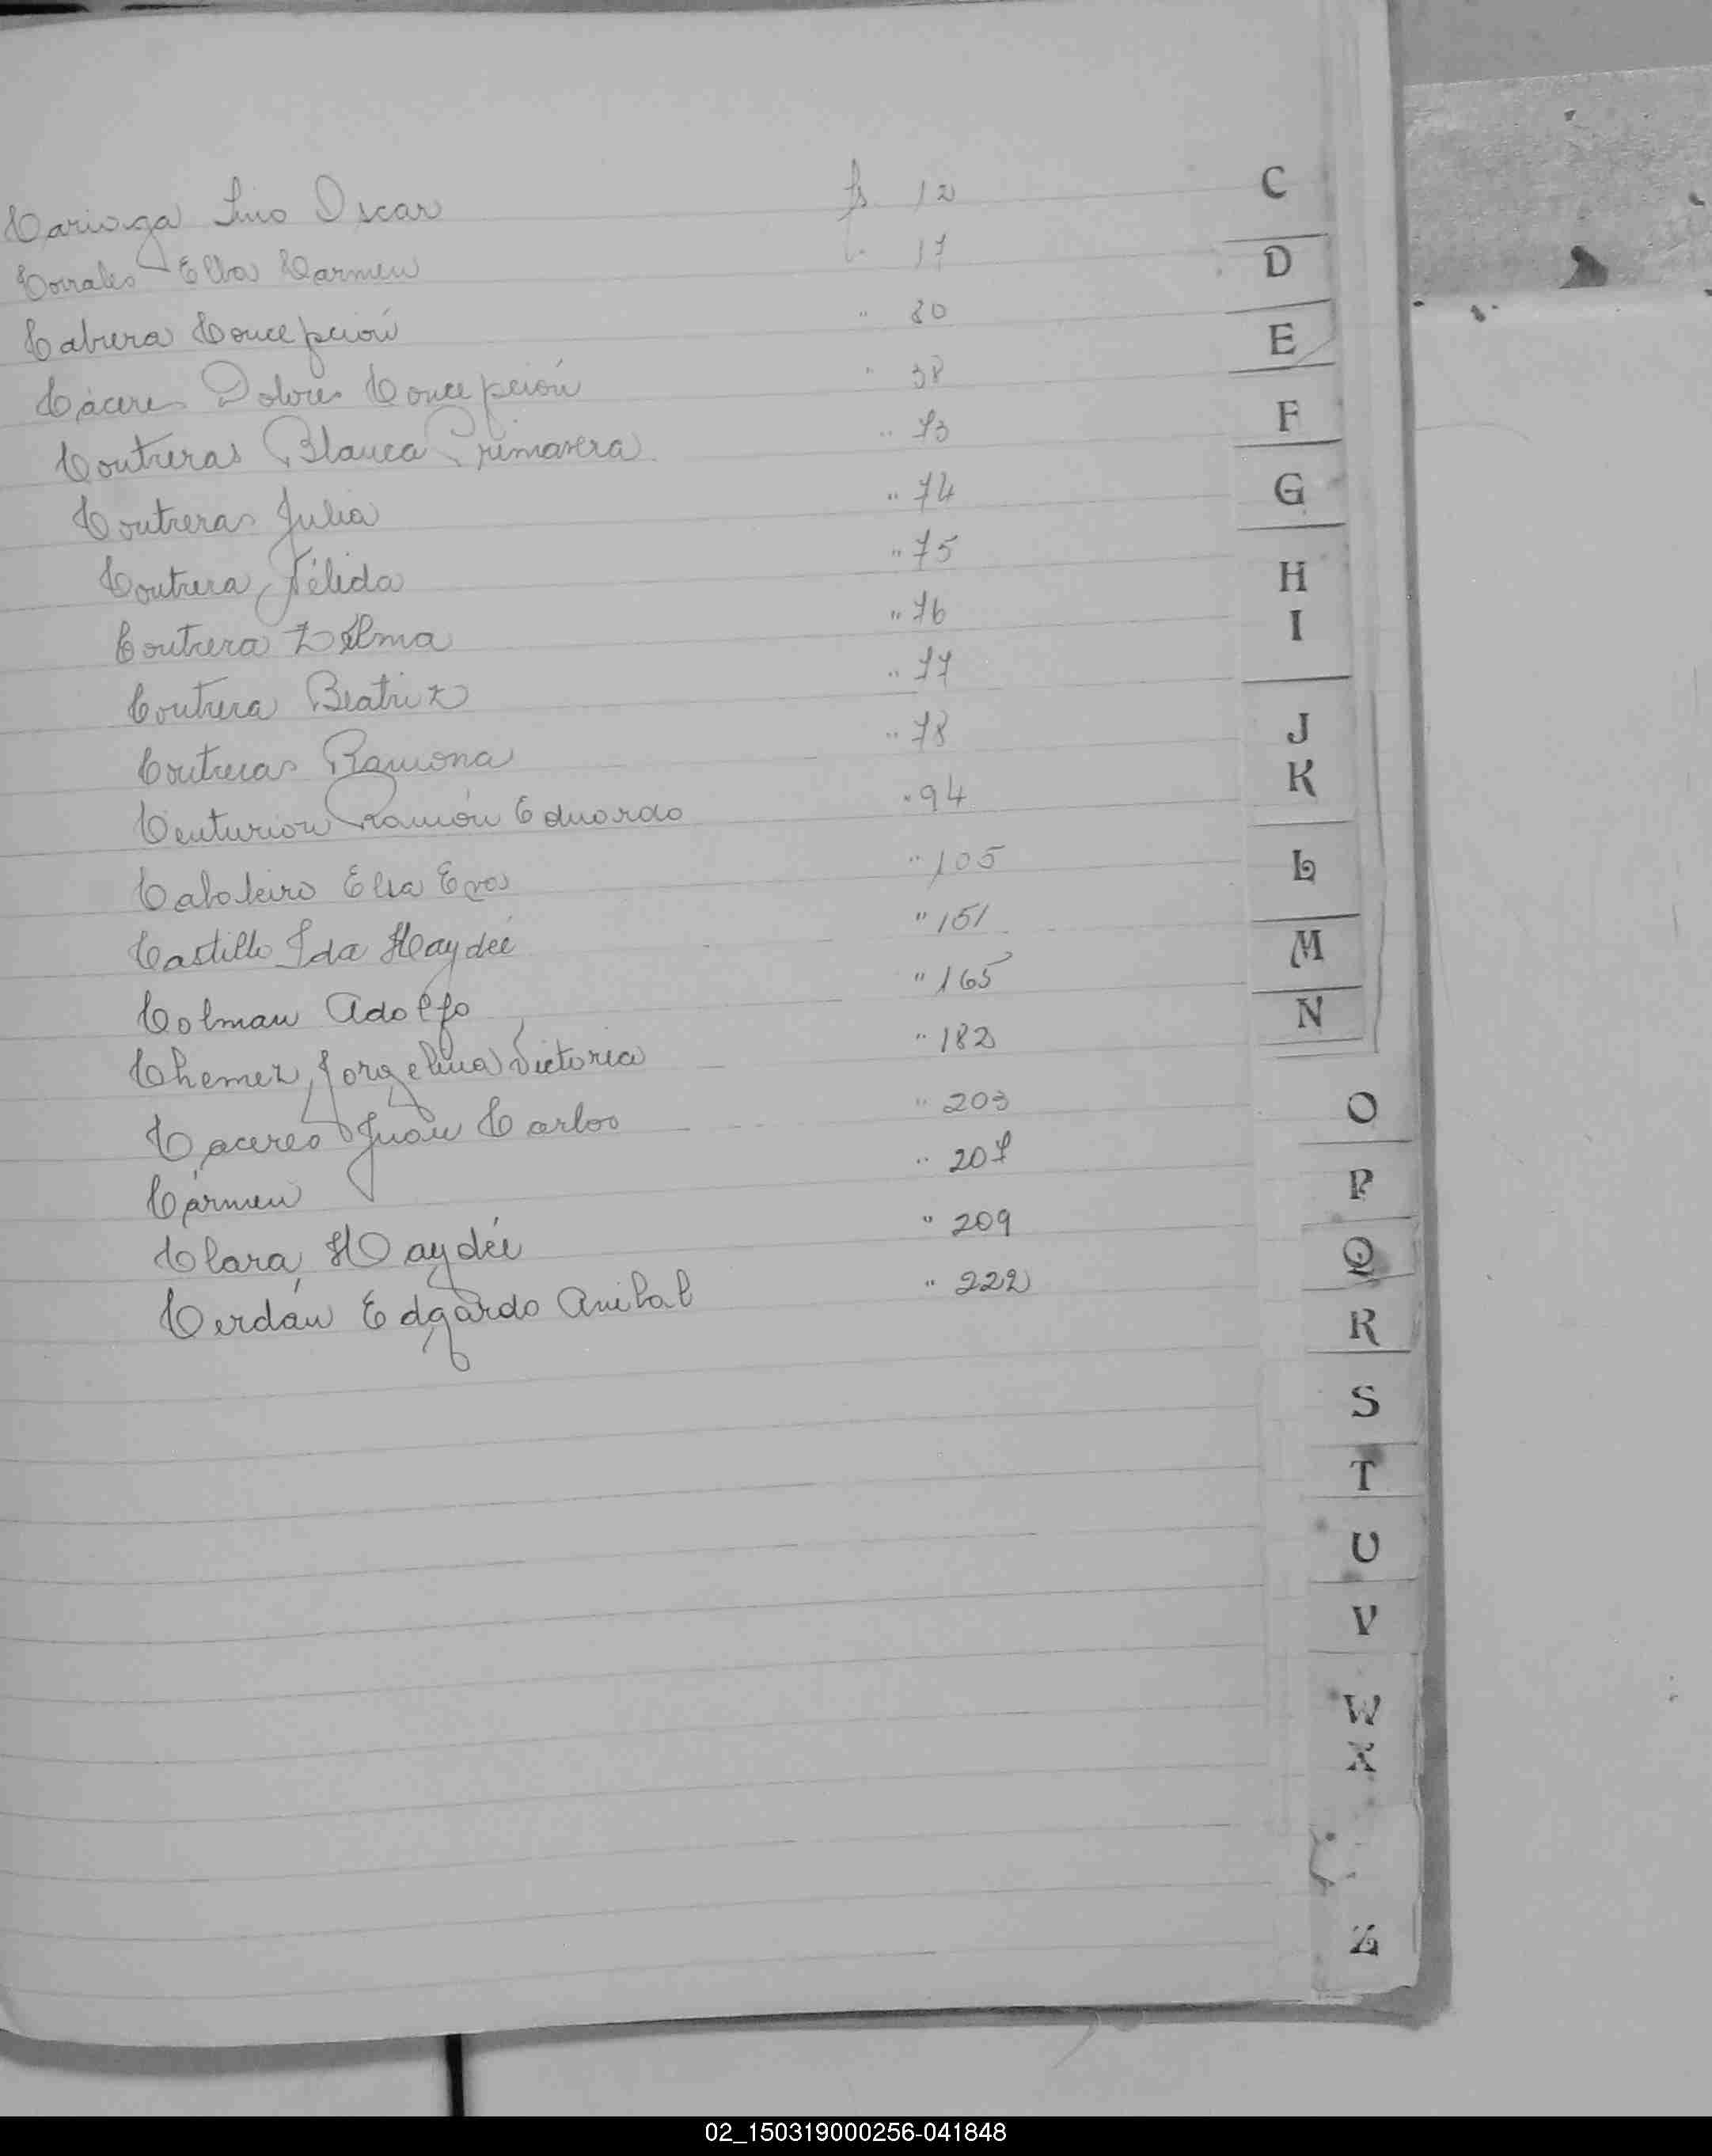 Cariaga Lino Oscar fs 12
Corrales Elba Carmen " 17
Cabrera Concepción " 20
Cáceres Dolores Concepción " 38
Contreras Blanca Primavera " 73
Contreras Julia " 74
Contrera, Nélida " 75
Contrera Zélma " 76
Contrera Beatriz " 77
Contreras Ramona " 78
Centurion Ramón Eduardo " 94
Caboleiro Elsa Eva " 105
Castillo Ida Haydée " 151
Colman Adolfo " 165
Chemez, Jorgelina Victoria " 182
Caceres Juan Carlos " 203
Cármen " 207
Clara, Haydée " 209
Cerdán Edgardo Anibal " 222
C
D
E
F
G
H
I
J
K
L
M
N
O
P
Q
R
S
T
U
V
W
X
Z
02_150319000256-041848